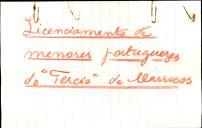 Licenciamento de
menores portuguezes
do "Tercio" de Marrocos